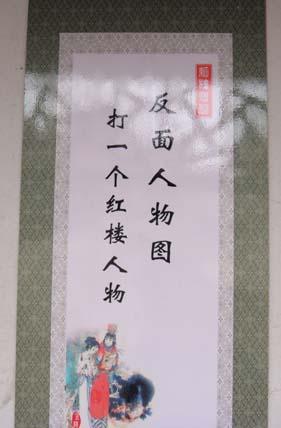 反面人物图
打一个红楼人物